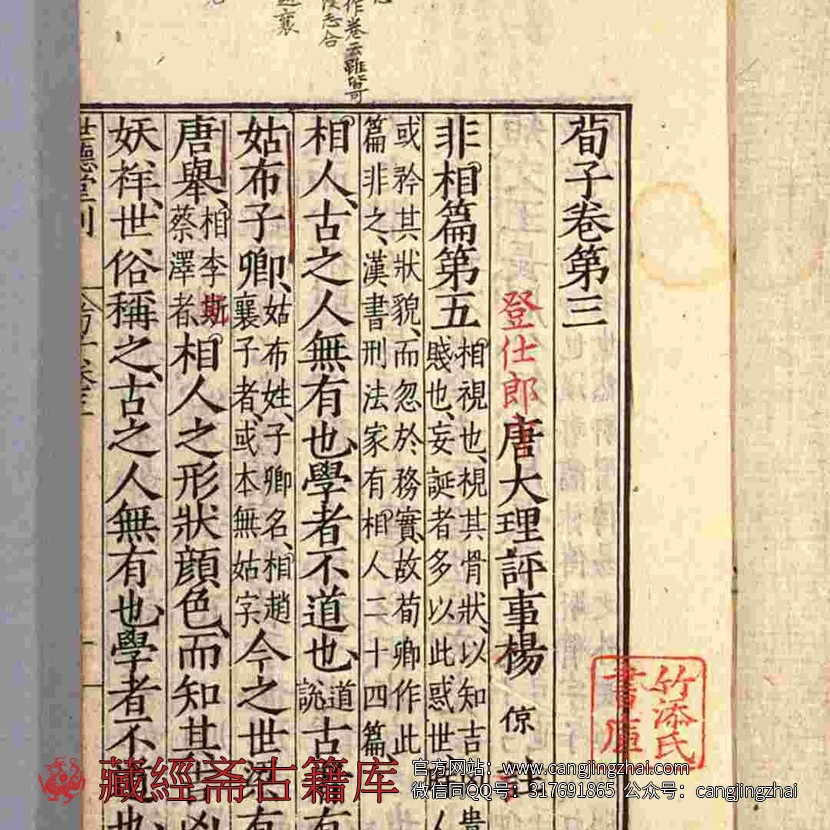 荀子卷第三
登仕郎唐大理評事楊倞
非相篇第五
相視也視其骨狀以知吉凶貴
賤也妄誕者多以此惑世
或矜其狀貌而忽於務實故荀卿作此
篇非之漢書刑法家有相人二十四篇
相人古之人無有也學者不道也
道
說
古者有
姑布子卿
姑布姓子卿名相趙
襄子者或本無姑字
今之世梁有
唐舉
相李斯
蔡澤者
相人之形狀顏色而知其吉凶
妖祥世俗稱之古之人無有也學者不道也
世德堂刊
作卷云雖皆可
竹添氏
書庫
藏經斋古籍库
官方网站：www.cangjingzhai.com
微信同QQ号：317691865 公众号：cangjingzhai